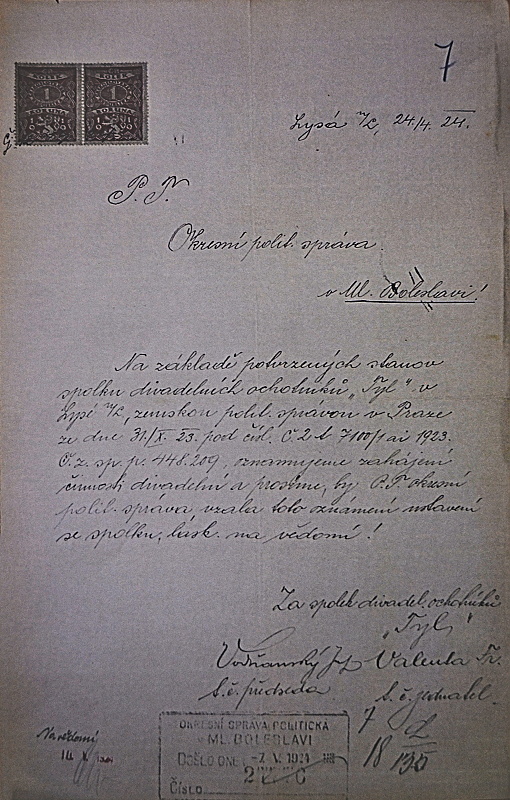 7
KOLEK KOLEK
1 1
KORUNA KORUNA
Lysá n/L, 24/4. 24.
P. T.
Okresní polit. správa
v Ml. Boleslavi!
Na základě potvrzených stanov
spolku divadelních ochotníků „Tyl" v
Lysé n/L, zemskou polit. správou v Praze
ze dne 31/X. 23. pod čísl. Č. 2 7100/1 ai 1923.
Č. z. sp. p. 448.209, oznamujeme zahájení
činnosti divadelní a prosíme, by P.T. okresní
polit. správa vzala toto oznámení ustavení
se spolku, lásk. na vědomí!
Za spolek divadel. ochotníků
„Tyl"
Vodňanský Valenta Fr.
t. č. předseda t. č. jednatel.
Na vědomí
OKRESNÍ SPRÁVA POLITICKÁ
v ML. BOLESLAVI
DOŠLO DNE -7. V. 1924
ČÍSLO
7
18
130